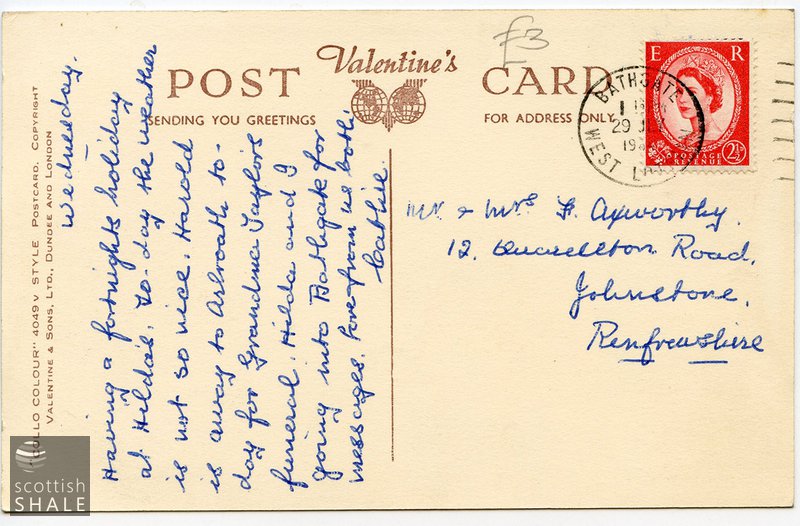 £3
POST
Valentine's
CARD
SENDING YOU GREETINGS
FOR ADDRESS ONLY
E R
POSTAGE
REVENUE
2½
BATHGATE
29
19
WEST
Wednesday.
Having a fortnights holiday
at Hilda's. To-day the weather
is not so nice. Harold
is away to Arbroath to-
day for Grandma Taylor's
funeral. Hilda and I
going into Bathgate for
messages. Love from us both
Cathie.
Mr. & Mrs F. Axworthy.
12, Quarrelton Road,
Johnstone,
Renfrewshire
"COLLO COLOUR" 4049 V STYLE POSTCARD. COPYRIGHT
VALENTINE & SONS, LTD., DUNDEE AND LONDON
scottish
SHALE